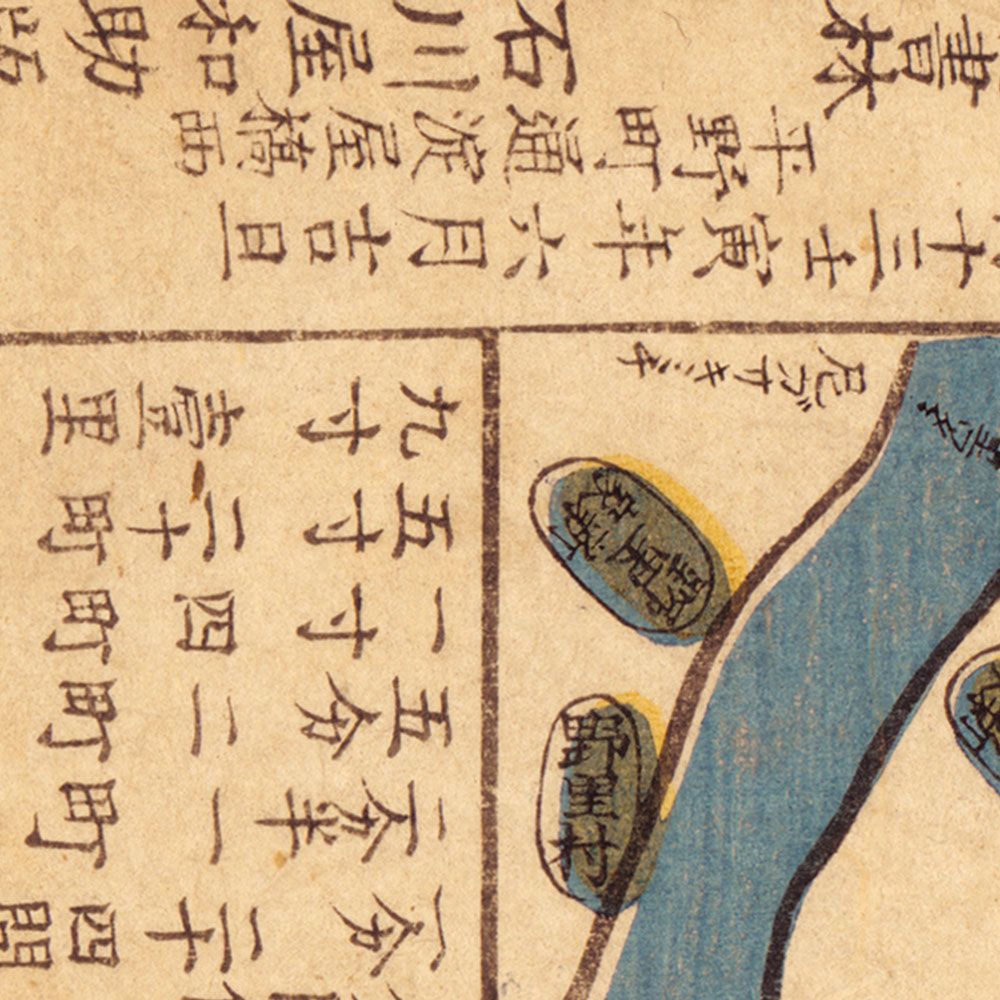 十三壬寅年六月吉旦
平野町通淀屋橋西
書林 石川屋和助
一分 二十四間
二分半 一町
五分 二町
一寸 四町
五寸 二十町
九寸 壹里
野里村
尼ガサキミチ